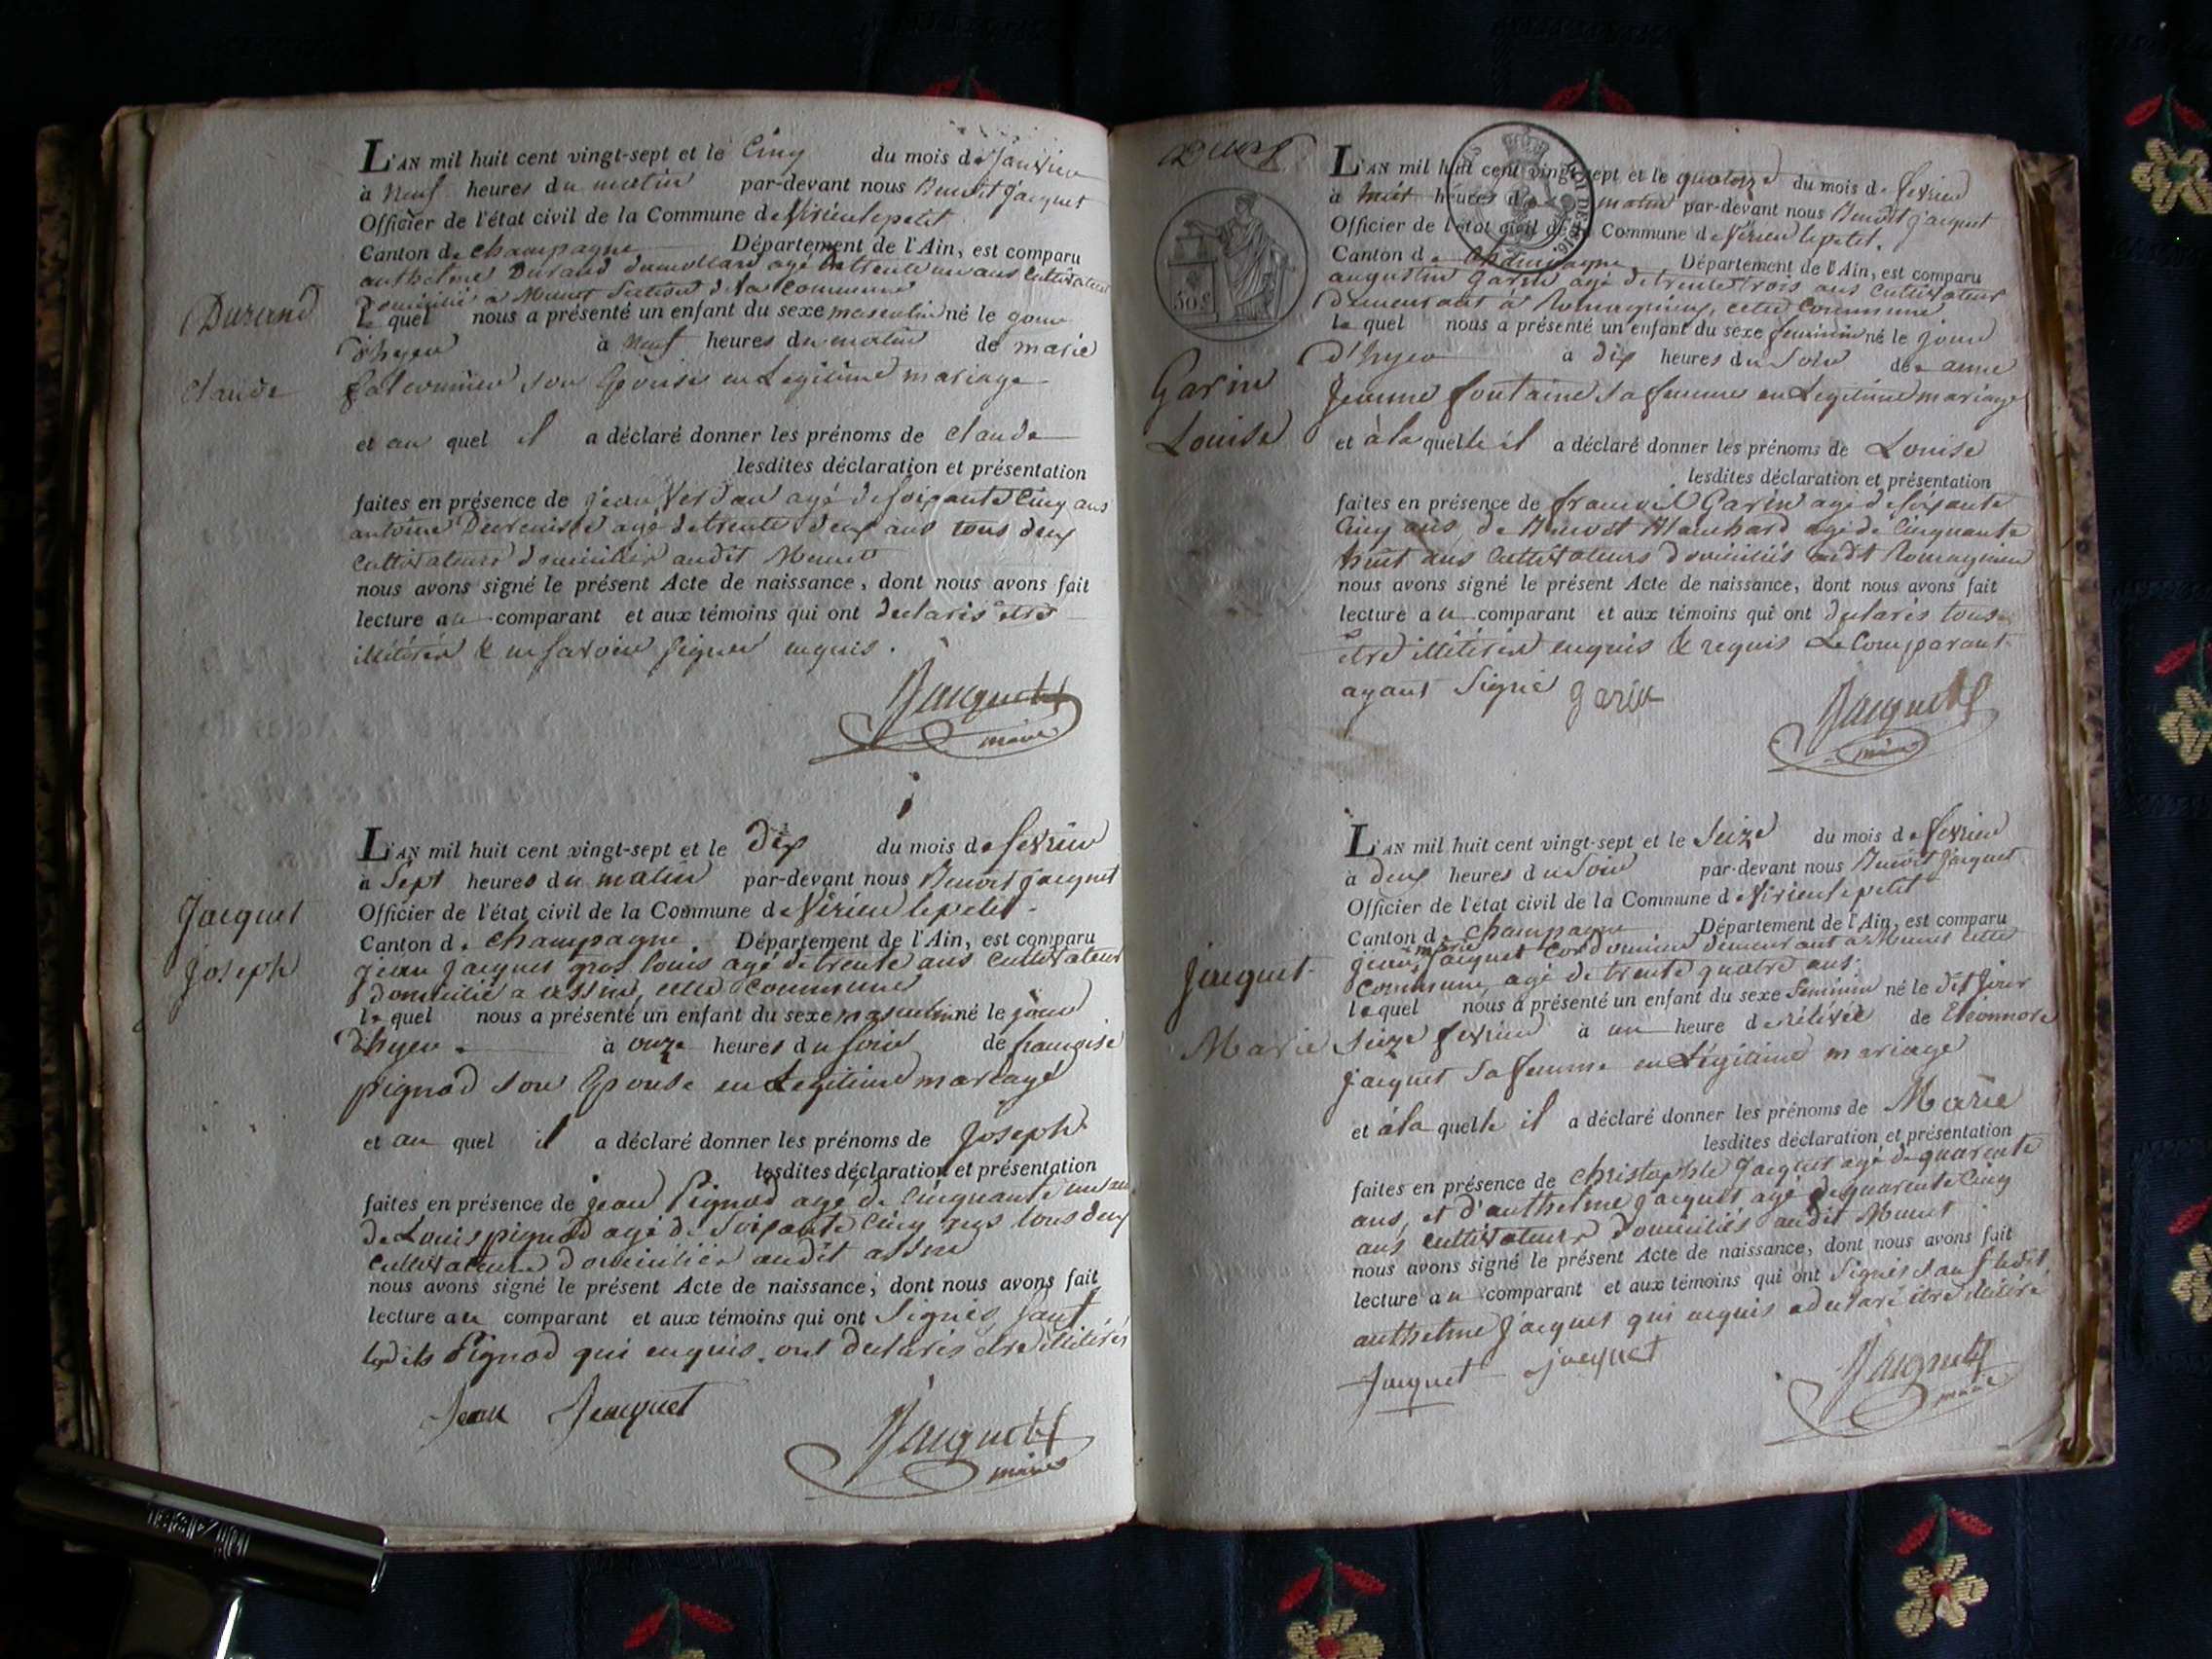 L'AN mil huit cent vingt-sept et le Cinq du mois de janvier
à Neuf heures du matin par-devant nous Benoit jacquet
Officier de l'état civil de la Commune de Virieu le petit
Canton de champagne Département de l'Ain, est comparu
anthelme Durand agé de trente un ans cultivateur
Domicilié à Munet Section de la Commune
Le quel nous a présenté un enfant du sexe masculin né le jour
Durand
d'hyer à Neuf heures du matin de marie
claude
son Epouse en Legitime mariage
et au quel il a déclaré donner les prénoms de claude
lesdites déclaration et présentation
faites en présence de jean agé de soixante Cinq ans
antoine agé de trente deux ans tous deux
Cultivateurs domiciliés audit Munet
nous avons signé le présent Acte de naissance, dont nous avons fait
lecture au comparant et aux témoins qui ont declarés etre
illitérés & ne savoir signer enquis.
Jacquet
maire
L'AN mil huit cent vingt-sept et le dix du mois de fevrier
à Sept heures du matin par-devant nous Benoit jacquet
Officier de l'état civil de la Commune de Virieu le petit
Jacquet
Canton de champagne. Département de l'Ain, est comparu
Joseph
jean jacquet gros louis agé de trente ans cultivateur
domicilié a assin, cette commune
le quel nous a présenté un enfant du sexe masculin né le jour
d'hyer à onze heures du soir de françoise
pignod son Epouse en Legitime mariage
et au quel il a déclaré donner les prénoms de Joseph
lesdites déclaration et présentation
faites en présence de jean Pignod agé de Cinquante un ans
de Louis pignod agé de Soixante Cinq ans tous deux
cultivateurs domiciliés audit assin
nous avons signé le présent Acte de naissance, dont nous avons fait
lecture au comparant et aux témoins qui ont Signés, sauf
lesdits Pignod qui enquis ont declarés etre illitérés
Jean Jacquet
Jacquet
maire
L'AN mil huit cent vingt-sept et le quatorze du mois de fevrier
à huit heures du matin par-devant nous Benoit jacquet
Officier de l'état civil de la Commune de Virieu le petit.
50 c
Canton de Champagne Département de l'Ain, est comparu
augustin Garin agé de trente trois ans Cultivateur
Demeurant à Romagnieu, cette Commune
le quel nous a présenté un enfant du sexe feminin né le jour
d'hyer à dix heures du Soir de anne
Garin
Jeanne fontaine sa femme en Legitime mariage
Louise
et à la quelle il a déclaré donner les prénoms de Louise
lesdites déclaration et présentation
faites en présence de françois Garin agé de soixante
Cinq ans, de Benoit Blanchard agé de Cinquante
huit ans Cultivateurs domiciliés audit Romagnieu
nous avons signé le présent Acte de naissance, dont nous avons fait
lecture au comparant et aux témoins qui ont declarés tous
etre illitérés enquis & requis Le Comparant
ayant Signé garin
Jacquet
maire
L'AN mil huit cent vingt-sept et le Seize du mois de fevrier
à deux heures du Soir par-devant nous Benoit Jacquet
Officier de l'état civil de la Commune de Virieu le petit
Canton de champagne Département de l'Ain, est comparu
jean marie jacquet Cordonnier demeurant à Munet cette
Jacquet
Commune, agé de trente quatre ans.
le quel nous a présenté un enfant du sexe feminin né le dit jour
Marie
Seize fevrier à un heure de rélévée de Eléonnore
jacquet sa femme en Légitime mariage
et à la quelle il a déclaré donner les prénoms de Marie
lesdites déclaration et présentation
faites en présence de christophle Jacquet agé de quarante
ans, et d'anthelme jacquet agé de quarente Cinq
ans cultivateurs domiciliés audit Munet
nous avons signé le présent Acte de naissance, dont nous avons fait
lecture au comparant et aux témoins qui ont Signés sauf ledit
anthelme jacquet qui enquis a declaré etre illitéré
Jacquet jacquet
Jacquet
maire